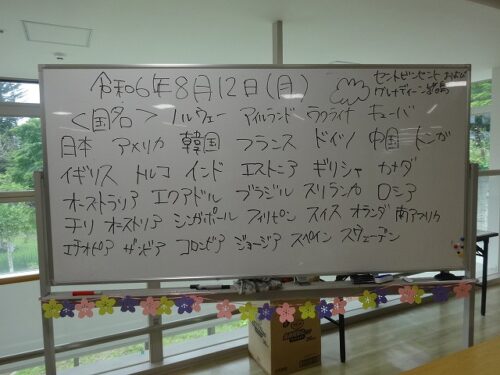 令和6年8月12日(月)
セントビンセント および
グレナディーン諸島
<国名> ノルウェー アイルランド ウクライナ キューバ
日本 アメリカ 韓国 フランス ドイツ 中国 トンガ
イギリス トルコ インド エストニア ギリシャ カナダ
オーストラリア エクアドル ブラジル スリランカ ロシア
チリ オーストリア シンガポール フィリピン スイス オランダ 南アフリカ
エチオピア ザンビア コロンビア ジョージア スペイン スウェーデン